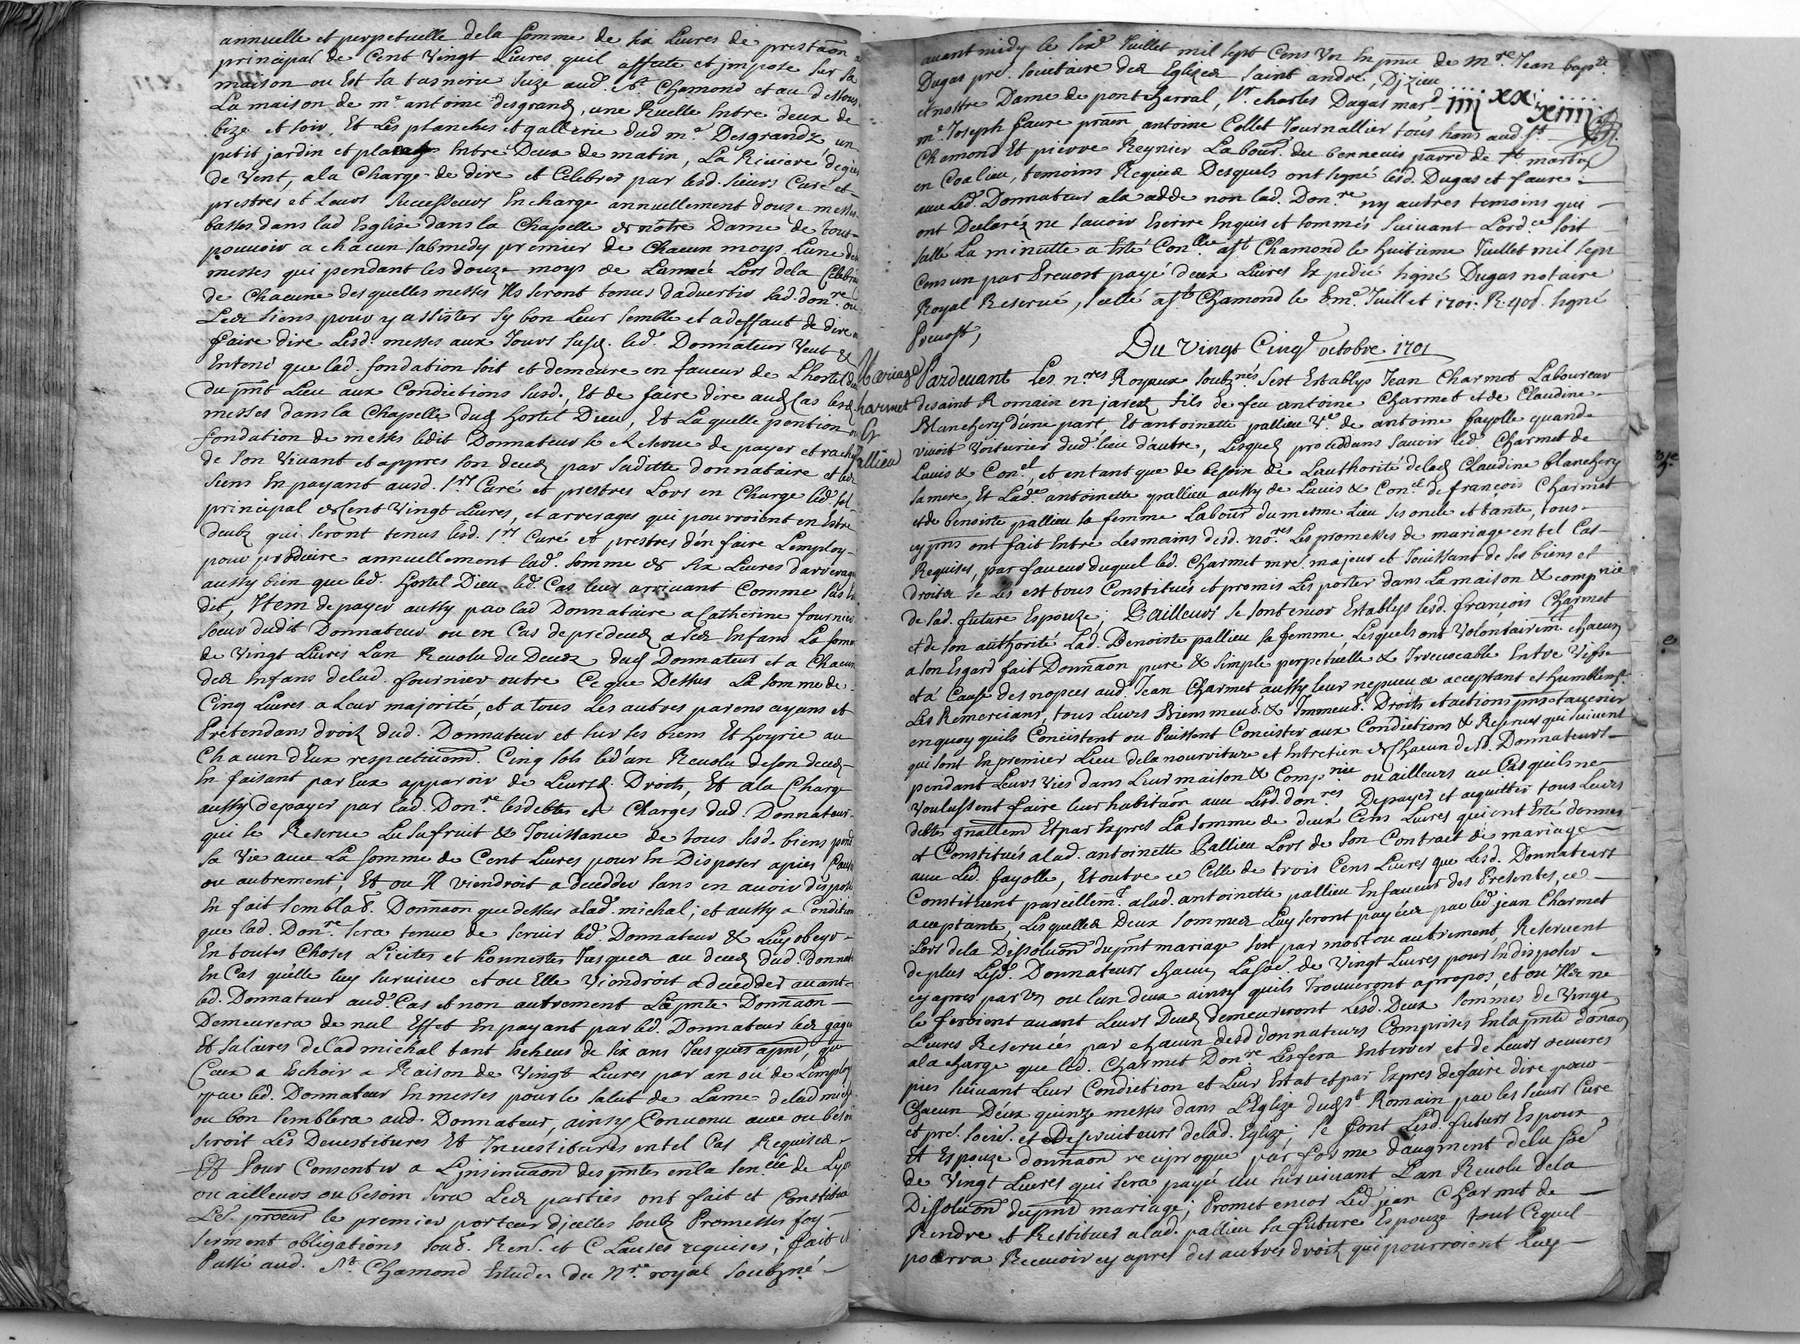 annuelle et perpetuelle dela somme de six Livres de prestaon a
principal de Cent Vingt Livres quil affecte et impose sur sa
maison ou Est sa tasnerie size aud. St Chamond et au dessous
La maison de mr antoine desgrand, une Ruelle Entre deux de
bize et soir, Et Les planches et gallerie dud mr Desgrandz un
petit jardin et Entre Deux de matin, La Riviere degier
de Vent, ala Charge de dire et Celebrer par lesd. sieurs Curé et
prestres et Leurs Successeurs En charge annuellement douze messes
basses dans lad Esglise dans la Chapelle de nostre Dame de tout-
pouvoir a chacun sabmedy premier de Chacun moys Lune des
messes qui pendant les douze moys de Lannée Lors dela Celebraon
de Chacune des quelles messes Ils seront tenus dadvertir lad. donre ou
Les siens pour y assister sy bon Leur semble et adeffaut de dire ou
faire dire Lesd. messes aux Jours susd. led. Donnateur Veut &
Entend que lad. fondation soit et demeure en faveur de Lhostel dieu
du pnt Lieu aux Condictions susd., Et de faire dire aud Cas lesd
messes dans la Chapelle dud hostel Dieu, Et Laquelle pention ou
fondation de messes ledit Donnateur se Reserve de payer et rachepter
de son Vivant et appres son deceds par ladotte donnataire et les
siens En payant ausd. srs Curé et prestres Lors en Charge led. sol
principal de Cent Vingt Livres, et arrerages qui pourroient en Estre
deubz qui seront tenus lesd. srs Curé et prestres den faire Lemploy
pour produire annuellement lad. somme de six Livres darrerages
aussy bien que led. hostel Dieu led. Cas leur arrivant Comme sus est
dit, Item de payer aussy par lad Donnataire a Catherine fournier
soeur dudit Donnateur ou en Cas de predeceds a ses Enfans La somme
de Vingt Livres Lan Revolu du Deceds dud Donnateur et a Chacun
des Enfans delad. fournier outre Ce que Dessus La somme de
Cinq Livres a Leur majorité, et a tous Les autres parens ayans et
Pretendans droit dud. Donnateur et sur les biens Et hoyrie au
Chacun d'Eux respectivemt. Cinq sols led'an Revolu de son deceds
En faisant par Eux apparoir de Leursd. Droits, Et ala Charge
aussy de payer par lad. Donre. les debtes et Charges dud. Donnateur
qui se Reserve Lusufruit & Jouissance de tous sesd. biens pendt
sa Vie avec La somme de Cent Livres pour En Disposer apres
ou autrement, Et ou Il viendroit a deceder sans en avoir disposé
En fait semblab. Donnaon que dessus alad. michal; et aussy a Condition
que lad. Donre. sera tenue de servir led. Donnateur & Luy obeyr
En toutes Choses Licites et honnestes Jusques au deceds dud. Donnat.
En Cas quelle luy survive et ou Elle Viendroit a deceder avant
led. Donnateur aud. Cas et non autrement La pnte Donnaon
Demeurera de nul Effet En payant par led. Donnateur les gages
Et salaires delad michal tant Escheus de six ans Jusques apnt, que
Ceux a Eschoir a Raison de Vingt Livres par an ou de Lemployer
par led. Donnateur En messes pour le salut de Lame delad michal
ou bon semblera aud. Donnateur, ainsy Convenu avec ou besoin
seroit Les Devestitures Et Investitures en tel Cas Requises
Et Pour Consentir a Lynsinuaon des pntes en la senlée de Lyon
ou ailleurs ou besoin sera Les parties ont fait et Constitué
Le premier porteur dicelles soubz Promesses foy
serment obligations soub. Ren. et Clauses requises; fait et
Passé aud. St Chamond Estude du nre royal soubzné

avant midy le six Juillet mil sept Cens Un En pnce de mre Jean bapte.
Dugas pre. societaire des Eglizes saint andré, Dizieu
et nostre Dame de pontcharral, sr. charles Dugas mard
IIII XX XIIII
mr Joseph faure prain, antoine Collet Journallier tous hans aud. St
Chamond Et pierre Reynier Labour. du berneuis parre de St martin
en Coalieu, temoins Requis Desquels ont signé lesd. Dugas et faure
avec led. Donnateur ala cedde non lad. Donre ny autres temoins qui
ont Declaréz ne savoir Escrire Enquis et sommés suivant Lordce soit
sellé La minutte a Esté Conllée a St Chamond le huitieme Juillet mil sept
Cens un par Prevost payé deux Livres Expedié signé Dugas notaire
Royal Reservé, sellé a St Chamond le 8me Juillet 1701. R. 40s. signé
Prevost,
Du Vingt Cinqe octobre 1701
Mariage
Charmet
Et
Pallieu
Pardevant Les nres Royaux soubznés sest Estably Jean Charmet Laboureur
de saint Romain en jarest fils de feu antoine Charmet et de Claudine
Blanchery d'une part, Et antoinette pallieu Ve. de antoine fayolle quand
vivoit Voiturier dud. lieu d'autre, Lesquels procedans savoir led Charmet de
Lavis & Conel, et entant que de besoin de Lauthorité delad Claudine blanchery
sa mere, Et Lade antoinette pallieu aussy de Lavis & Conel de françois Charmet
et de benoiste pallieu sa femme Labour du mesme Lieu ses oncle et tante, tous
cy pnts ont fait Entre Les mains desd. nores Les promesses de mariage en tel Cas
Requises, par faveur duquel led. Charmet mre. majeur et Jouissant de ses biens et
droits se Les est tous Constitués et promis Les porter dans La maison & compnie
de lad. future Espouze; Dailleurs se sont encor Establys lesd. françois Charmet
et de son authorité Lad. Benoiste pallieu sa femme, Lesquels ont Volontairemt. chacun
a son Esgard fait Donnaon pure & simple perpetuelle & Irrevocable Entre Vifs
et a Cause des nopces aud. Jean Charmet aussy leur nepveu acceptant et humblemt
Les Remerciant, tous Leurs Biens meub. & Immeub. Droits et actions pnts et avenir
en quoy quils Concistent ou Puissent Concister aux Condictions & Reserves qui suivent
qui sont En premier Lieu dela nourriture et Entretien de Chacun desd. Donnateurs
pendant Leurs Vies dans Leur maison & Compnie ou ailleurs au Cas quils ne
Voulussent faire leur habitaon avec Lesd. donres, De payer et acquitter tous Leurs
debtes gnallemt Et par Expres La somme de deux Cens Livres qui ont Esté donnés
et Constitués alad. antoinette Pallieu Lors de son Contract de mariage
avec Led. fayolle, Et outre ce Celle de trois Cens Livres que Lesd. Donnateurs
Constituent pareillemt. alad. antoinette pallieu En faveur des Presentes, ce
acceptante, Lesquelles Deux sommes Luy seront payées par led. jean Charmet
Lors dela Dissoluon du pnt mariage soit par mort ou autrement, Reservent
de plus Lesd. Donnateurs chacun Lasoe. de Vingt Livres pour En disposer
cy apres par Un ou Lun deux ainsy quils Trouveront apropos, et ou Ils ne
le feroient avant Leurs Deceds demeureront Lesd. Deux sommes de Vingt
Livres Reservées par chacun desd donnateurs Comprises En la pnte donaon
ala charge que led. Charmet Donre Les fera Enterrer et de Leurs oeuvres
pies suivant Leur Condiction et Leur Estat et par Expres de faire dire pour
Chacun Deux quinze messes dans L'Eglize dud St Romain par les sieurs Curé
et pre. socie. et Desserviteurs delad. Eglize; se font Lesd. futurs Espoux
Et Espouze donnaon reciproque par forme daugment dela soe
de Vingt Livres qui sera payé au survivant L'an Revolu dela
Dissoluon du pnt mariage; Promet encor Led. jean Charmet de
Rendre et Restituer alad. pallieu sa future Espouze tout Cequel
pourra Recevoir cy apres des autres droits qui pourroient Luy